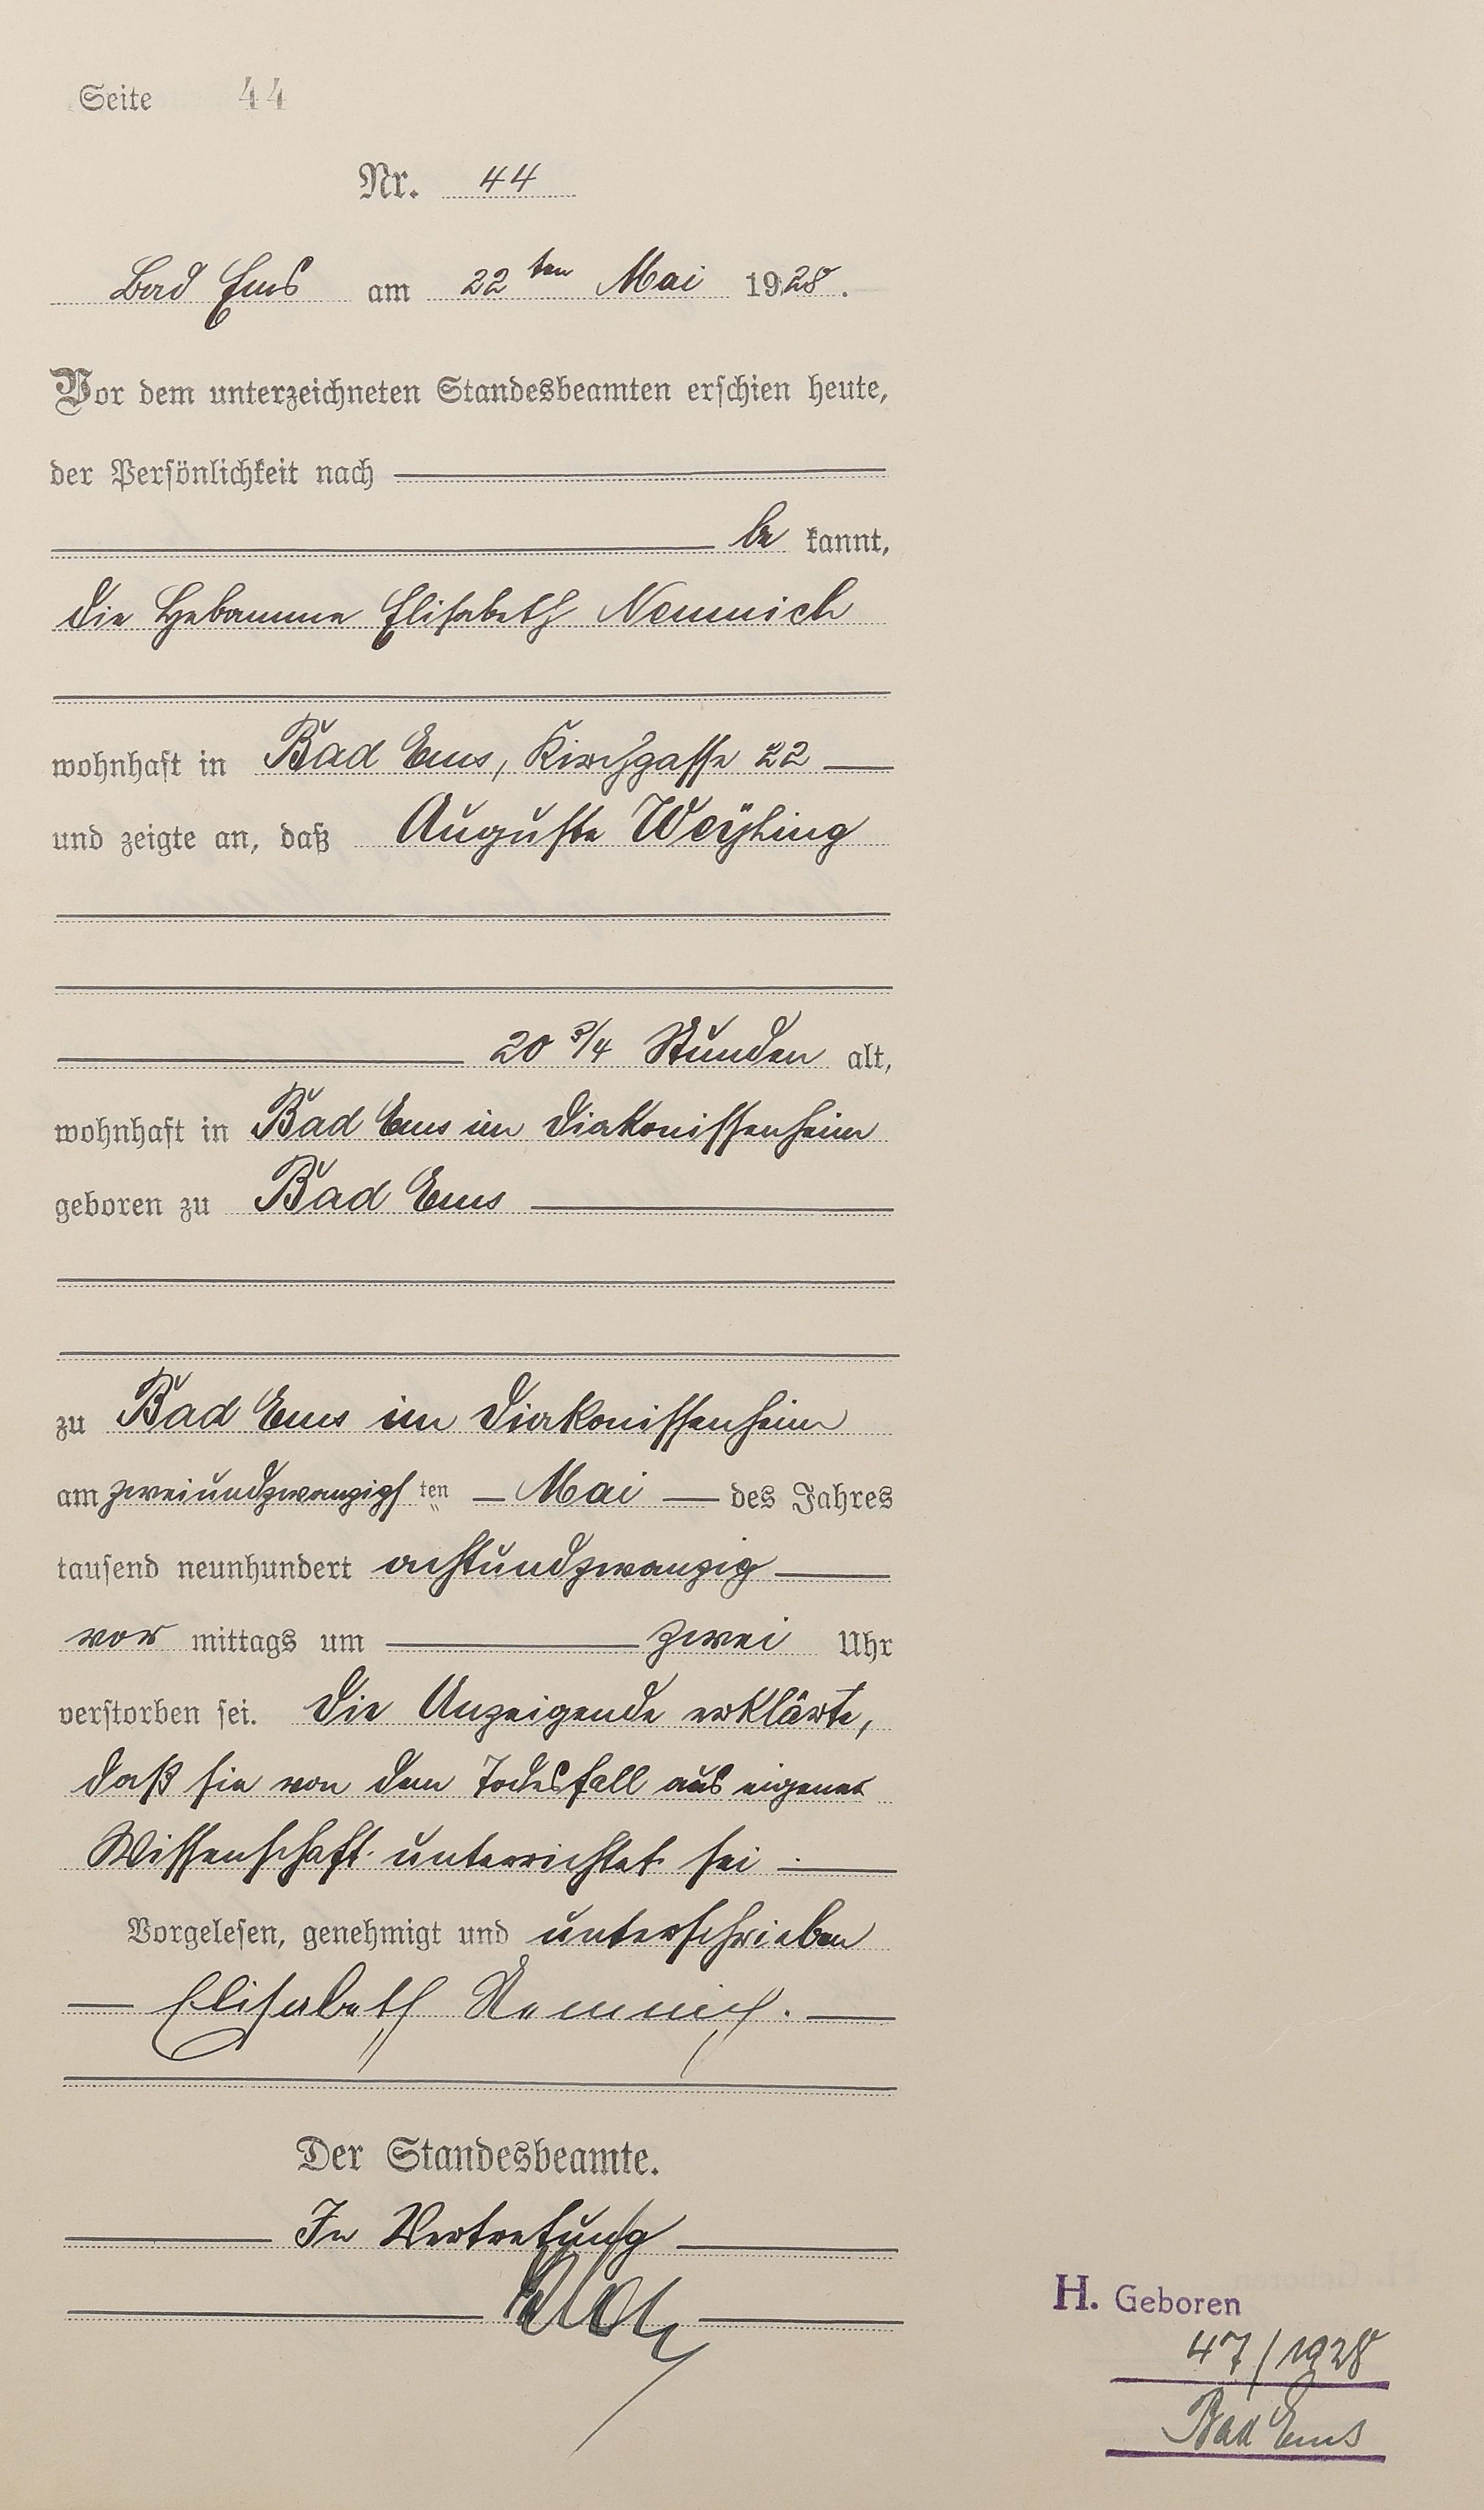 Seite 44
Nr. 44
Bad Ems am 22ten Mai 1928.
Vor dem unterzeichneten Standesbeamten erschien heute,
der Persönlichkeit nach
be kannt,
die Hebamme Elisabeth Nemnich
wohnhaft in Bad Ems, Kirchgasse 22
und zeigte an, daß Auguste Weÿhing
20 3/4 Stunden alt,
wohnhaft in Bad Ems im Diakonissenheim
geboren zu Bad Ems
zu Bad Ems im Diakonissenheim
am zweiundzwanzigsten Mai des Jahres
tausend neunhundert achtundzwanzig
vor mittags um zwei Uhr
verstorben sei. Die Anzeigende erklärte,
daß sie von dem Todesfall aus eigener
Wissenschaft unterrichtet sei.
Vorgelesen, genehmigt und unterschrieben
Elisabeth Nemnich.
Der Standesbeamte.
In Vertretung
H. Geboren
47/1928
Bad Ems